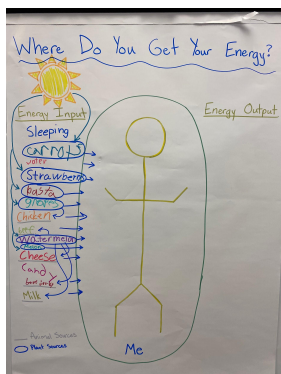 Where Do You Get Your Energy?
Energy Input
Energy Output
Sleeping
Carrots
water
Strawberry
Pasta
Chicken
Watermelon
Cheese
Candy
Milk
Animal Sources
Plant Sources
Me